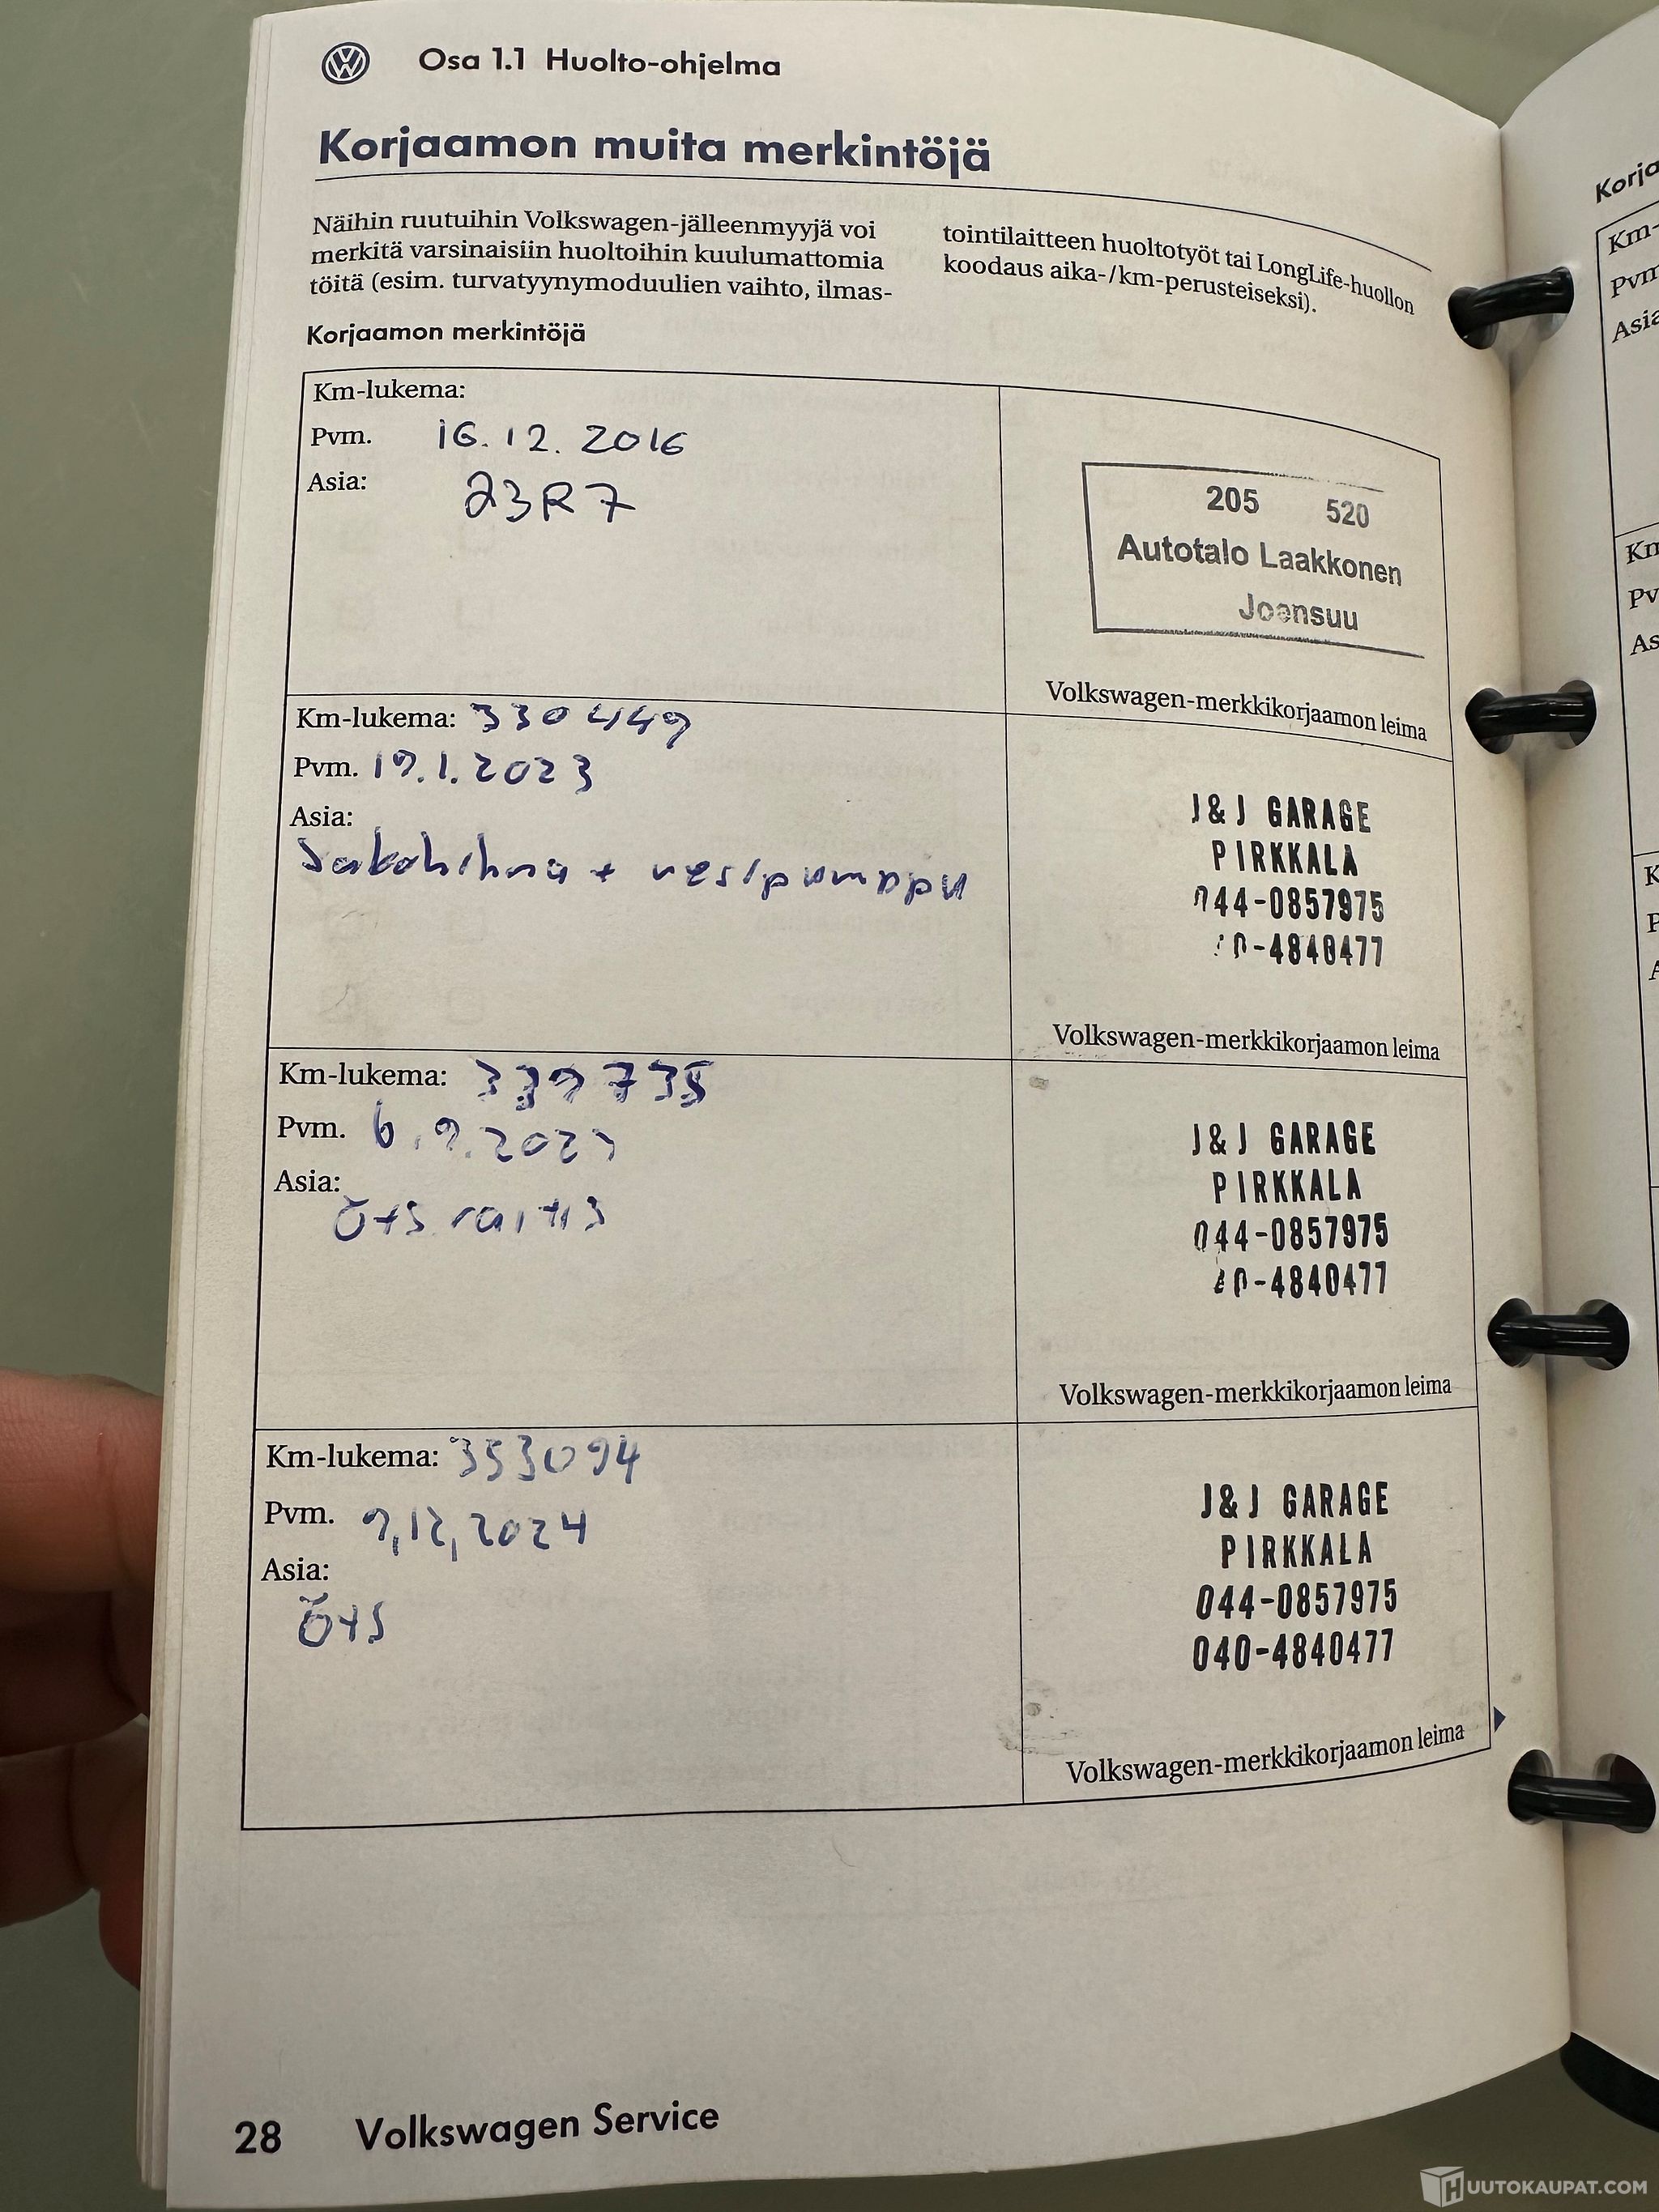 Osa 1.1 Huolto-ohjelma
Korjaamon muita merkintöjä
Näihin ruutuihin Volkswagen-jälleenmyyjä voi
merkitä varsinaisiin huoltoihin kuulumattomia
töitä (esim. turvatyynymoduulien vaihto, ilmas-
tointilaitteen huoltotyöt tai LongLife-huollon
koodaus aika-/km-perusteiseksi).
Korjaamon merkintöjä
Km-lukema:
Pvm. 16.12.2016
Asia: 23R7
205 520
Autotalo Laakkonen
Joensuu
Volkswagen-merkkikorjaamon leima
Km-lukema: 330449
Pvm. 19.1.2023
Asia:
Jakohihna + vesipumppu
J & J GARAGE
PIRKKALA
044-0857975
0-4840477
Volkswagen-merkkikorjaamon leima
Km-lukema: 339735
Pvm. 6.9.2023
Asia:
Ö+S raitis
J & J GARAGE
PIRKKALA
044-0857975
40-4840477
Volkswagen-merkkikorjaamon leima
Km-lukema: 353094
Pvm. 9,12,2024
Asia:
Ö+S
J & J GARAGE
PIRKKALA
044-0857975
040-4840477
Volkswagen-merkkikorjaamon leima
28 Volkswagen Service
Korja
Km-
Pvm
Asia
Km
Pv
As
K
P
A
HUUTOKAUPAT.COM